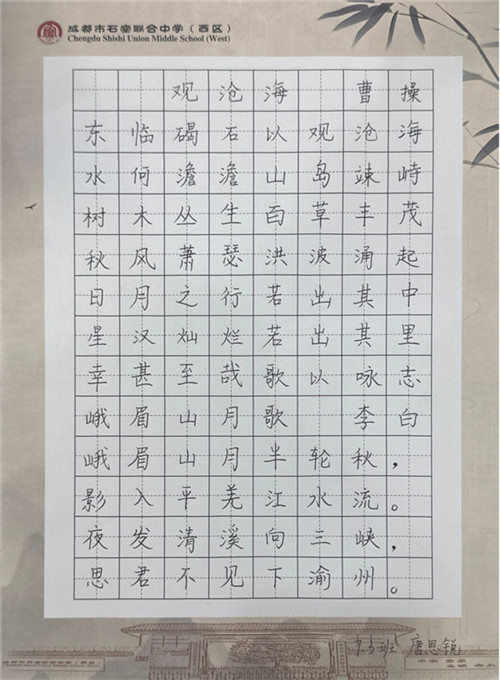 成都市石室联合中学（西区）
Chengdu Shishi Union Middle School (West)
观沧海 曹操
东临碣石以观沧海
水何澹澹山岛竦峙
树木丛生百草丰茂
秋风萧瑟洪波涌起
日月之行若出其中
星汉灿烂若出其里
幸甚至哉歌以咏志
峨眉山月歌 李白
峨眉山月半轮秋，
影入平羌江水流。
夜发清溪向三峡，
思君不见下渝州。
7.3班 唐思锐